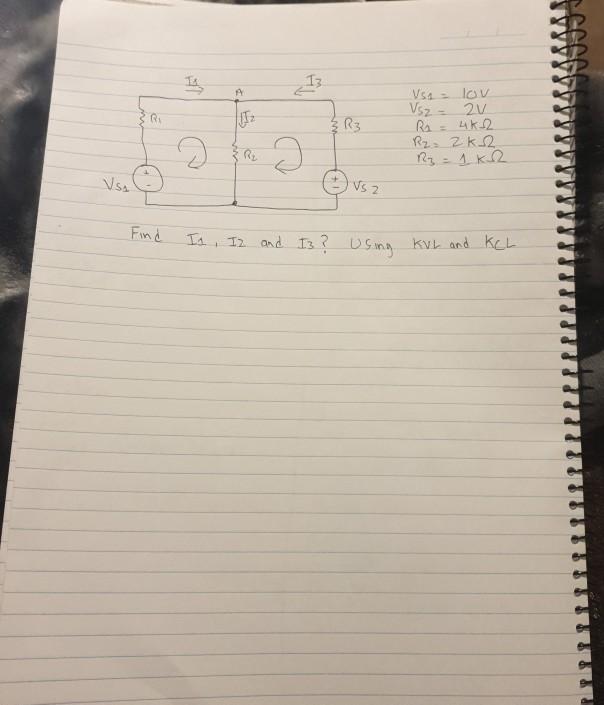 I1 A I3
R1 I2 R3
R2
Vs1 Vs2
Vs1 = 10V
Vs2 = 2V
R1 = 4kΩ
R2 = 2kΩ
R3 = 1kΩ
Find I1, I2 and I3? Using KVL and KCL